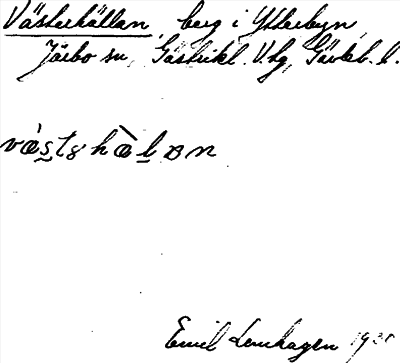 Västerhällan, berg i Ytterbyn,
Järbo sn, Gästrikl. V. tg, Gävleb. l.
væ̀stəhæ̀lan
Emil Lenhagen